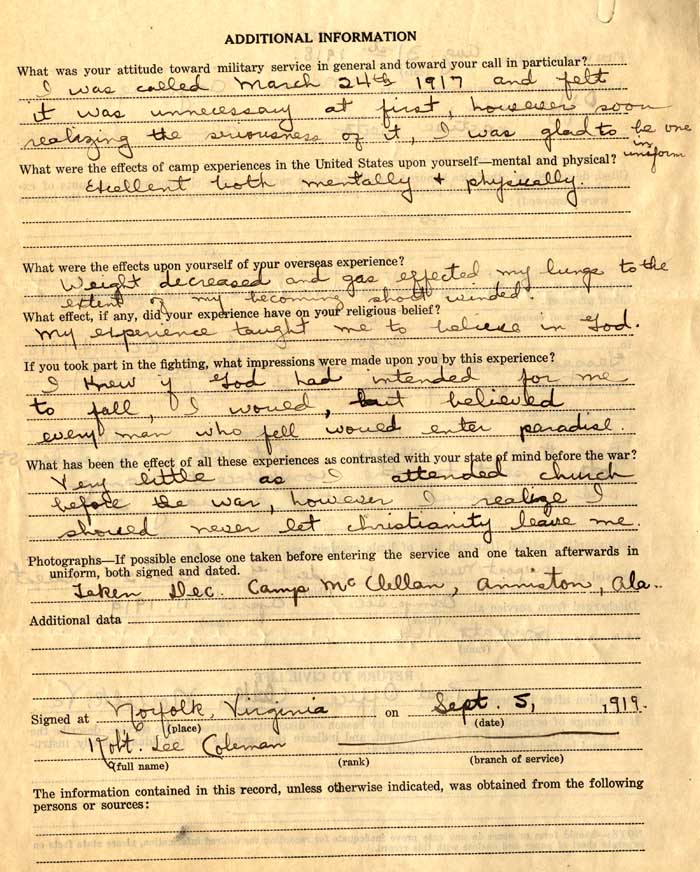 ADDITIONAL INFORMATION
What was your attitude toward military service in general and toward your call in particular?
I was called March 24th 1917 and felt
it was unnecessary at first, however soon
realizing the seriousness of it, I was glad to be one
in
What were the effects of camp experiences in the United States upon yourself—mental and physical? uniform
Excellent both mentally + physically.
What were the effects upon yourself of your overseas experience?
Weight decreased and gas effected my lungs to the
extent of my becoming short winded.
What effect, if any, did your experience have on your religious belief?
My experience taught me to believe in God.
If you took part in the fighting, what impressions were made upon you by this experience?
I knew if God had intended for me
to fall, I would, but believed
every man who fell would enter paradise.
What has been the effect of all these experiences as contrasted with your state of mind before the war?
Very little as I attended church
before the war, however I realize I
should never let christianity leave me.
Photographs—If possible enclose one taken before entering the service and one taken afterwards in
uniform, both signed and dated.
Taken Dec. Camp McClellan, Anniston, Ala.
Additional data
Signed at Norfolk, Virginia on Sept. 5, 1919.
(place) (date)
Robt. Lee Coleman
(full name) (rank) (branch of service)
The information contained in this record, unless otherwise indicated, was obtained from the following
persons or sources: